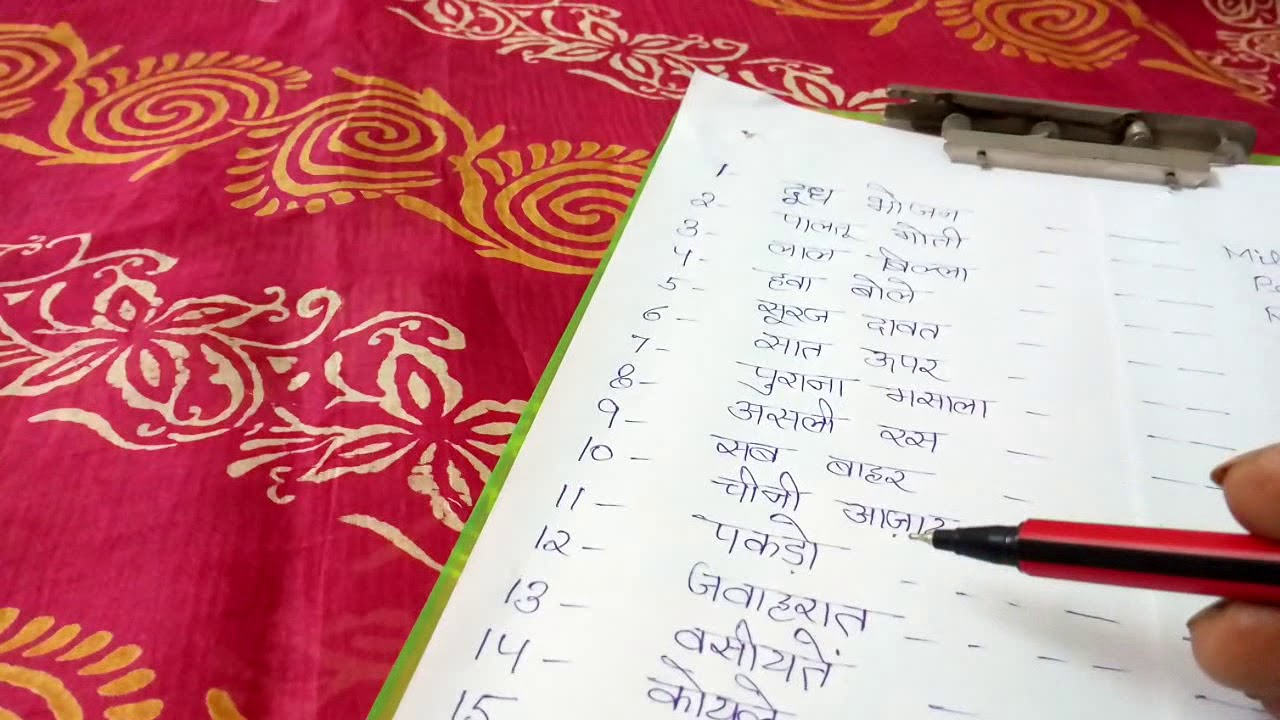 1- दूध भोजन
2- पालतू मोती
3- लाल बिल्ला
4- हवा बोले
5- सूरज दावत
6- सात ऊपर
7- पुराना मसाला
8- असली रस
9- सब बाहर
10- चीनी
11- पकड़ो
12- जवाहरात
13- वसीयतें
14- कोयले
15